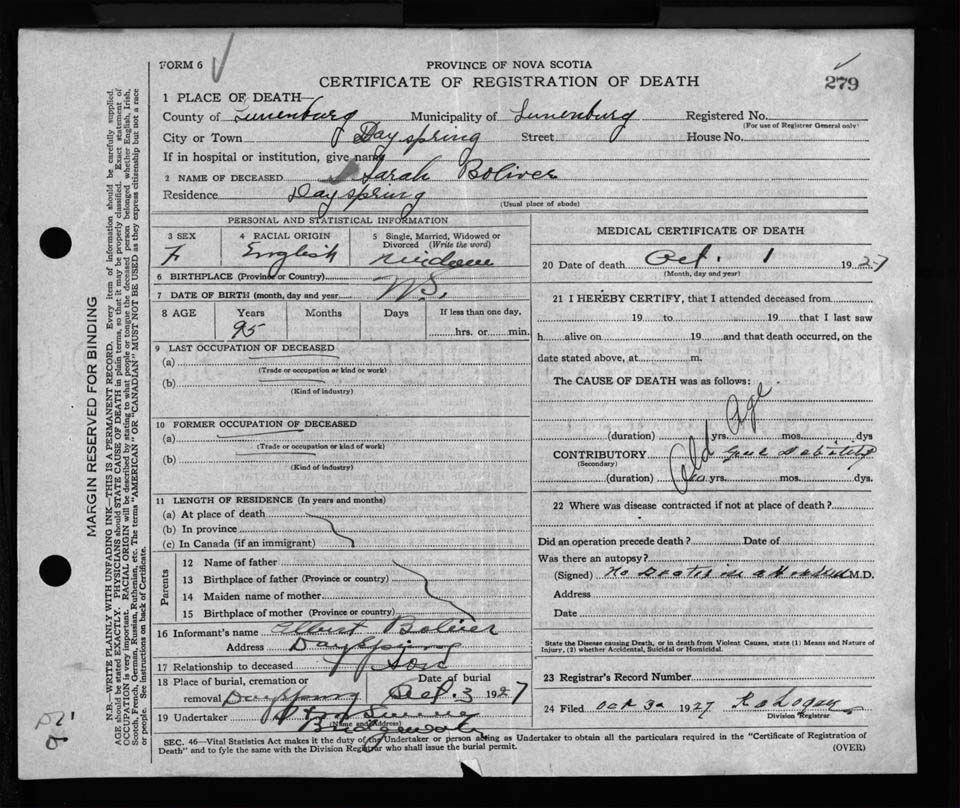 FORM 6
PROVINCE OF NOVA SCOTIA
CERTIFICATE OF REGISTRATION OF DEATH
279
1 PLACE OF DEATH—
County of Lunenburg Municipality of Lunenburg Registered No.
(For use of Registrar General only)
City or Town Dayspring Street House No.
If in hospital or institution, give name
2 NAME OF DECEASED Sarah Boliver
Residence Dayspring
(Usual place of abode)
PERSONAL AND STATISTICAL INFORMATION
3 SEX F
4 RACIAL ORIGIN English
5 Single, Married, Widowed or Divorced (Write the word) Widow
6 BIRTHPLACE (Province or Country) N.S.
7 DATE OF BIRTH (month, day and year)
8 AGE Years 95 Months Days If less than one day, hrs. or min.
9 LAST OCCUPATION OF DECEASED
(a)
(Trade or occupation or kind or work)
(b)
(Kind of industry)
10 FORMER OCCUPATION OF DECEASED
(a)
(Trade or occupation or kind of work)
(b)
(Kind of industry)
11 LENGTH OF RESIDENCE (In years and months)
(a) At place of death
(b) In province
(c) In Canada (if an immigrant)
Parents
12 Name of father
13 Birthplace of father (Province or country)
14 Maiden name of mother
15 Birthplace of mother (Province or country)
16 Informant's name Elbert Boliver
Address Dayspring
17 Relationship to deceased Son
18 Place of burial, cremation or removal Dayspring Date of burial Oct. 3 1927
19 Undertaker
(Name and Address)
Bridgewater
MEDICAL CERTIFICATE OF DEATH
20 Date of death Oct. 1 1927
(Month, day and year)
21 I HEREBY CERTIFY, that I attended deceased from
19 to 19 that I last saw
h alive on 19 and that death occurred, on the
date stated above, at m.
The CAUSE OF DEATH was as follows:
Old Age
(duration) yrs. mos. dys
CONTRIBUTORY Gen'l Debility
(Secondary)
(duration) yrs. mos. dys.
22 Where was disease contracted if not at place of death?
Did an operation precede death? Date of
Was there an autopsy?
(Signed) No Doctor in attendance M.D.
Address
Date
State the Disease causing Death, or in death from Violent Causes, state (1) Means and Nature of
Injury, (2) whether Accidental, Suicidal or Homicidal.
23 Registrar's Record Number
24 Filed Oct 3rd 1927
Division Registrar
SEC. 46—Vital Statistics Act makes it the duty of the Undertaker or person acting as Undertaker to obtain all the particulars required in the "Certificate of Registration of
Death" and to fyle the same with the Division Registrar who shall issue the burial permit.
(OVER)
MARGIN RESERVED FOR BINDING
N.B.—WRITE PLAINLY WITH UNFADING INK—THIS IS A PERMANENT RECORD. Every item of information should be carefully supplied.
AGE should be stated EXACTLY. PHYSICIANS should STATE CAUSE OF DEATH in plain terms, so that it may be properly classified. Exact statement of
OCCUPATION is very important. RACIAL ORIGIN will be described by stating to what people or tongue the deceased person belonged whether English, Irish,
Scotch, French, German, Russian, Ruthenian, etc. The terms "AMERICAN" OR "CANADIAN" MUST NOT BE USED as they express citizenship but not a race
or people. See instructions on back of Certificate.